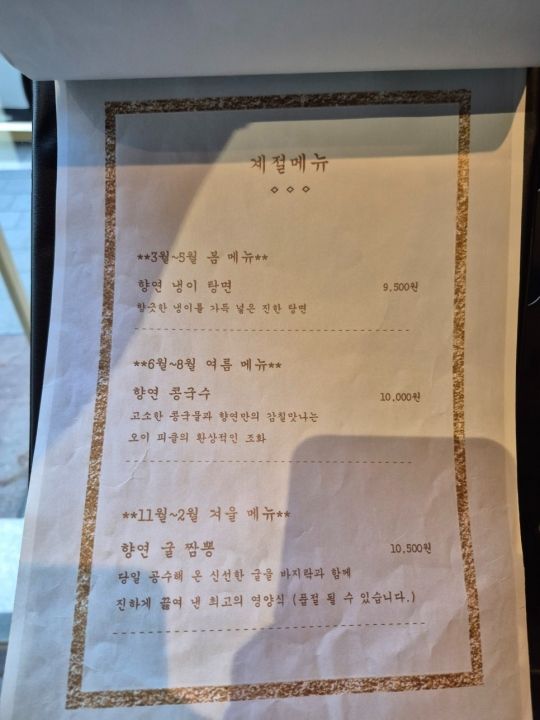 계절메뉴
◇ ◇ ◇
**3월~5월 봄 메뉴**
향연 냉이 탕면 9,500원
향긋한 냉이를 가득 넣은 진한 탕면
**6월~8월 여름 메뉴**
향연 콩국수 10,000원
고소한 콩국물과 향연만의 감칠맛나는
오이 피클의 환상적인 조화
**11월~2월 겨울 메뉴**
향연 굴 짬뽕 10,500원
당일 공수해 온 신선한 굴을 바지락과 함께
진하게 끓여 낸 최고의 영양식 (품절 될 수 있습니다.)